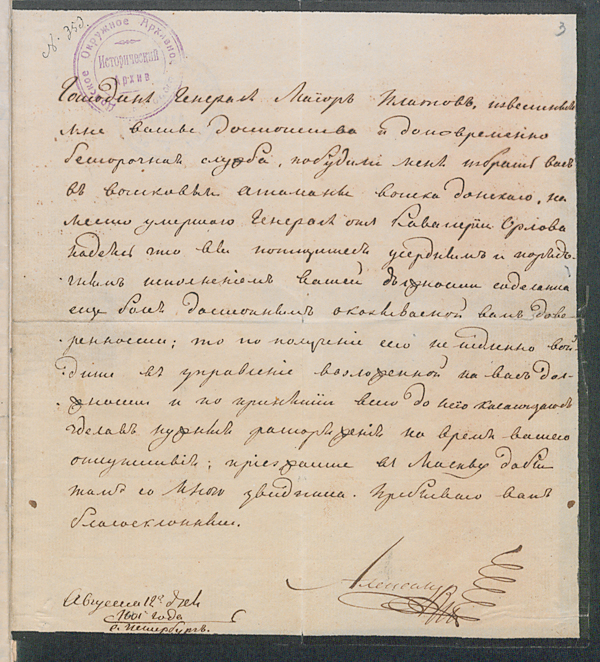 № 35д.
3
Окружное Архивно
Исторический
Архив
Господинъ Генералъ Маіоръ Платовъ, известныя
мне вашы достоинства и долговременно
беспорочная служба, побудили меня избрать васъ
въ войсковыя атаманы войска донскаго, на
место умершаго Генерала отъ Кавалеріи Орлова
надеясь что вы потщитесь усерднымъ и поряд-
чнымъ исполненіемъ вашей должности соделатца
еще более достойнымъ оказываемой вамъ дове-
ренности; то по полученіе сего немедленно вой-
дите въ управленіе возложенной на васъ дол-
жности и по принятіи всего до него касающегось
зделавъ нужныя распоряженія на время вашего
отсутствія; приезжайте въ Москву дабы
тамъ со мною увидится. Пребываю вамъ
благосклонный.
Александръ
Августа 12го дня
1801 года
С. Петербургъ.